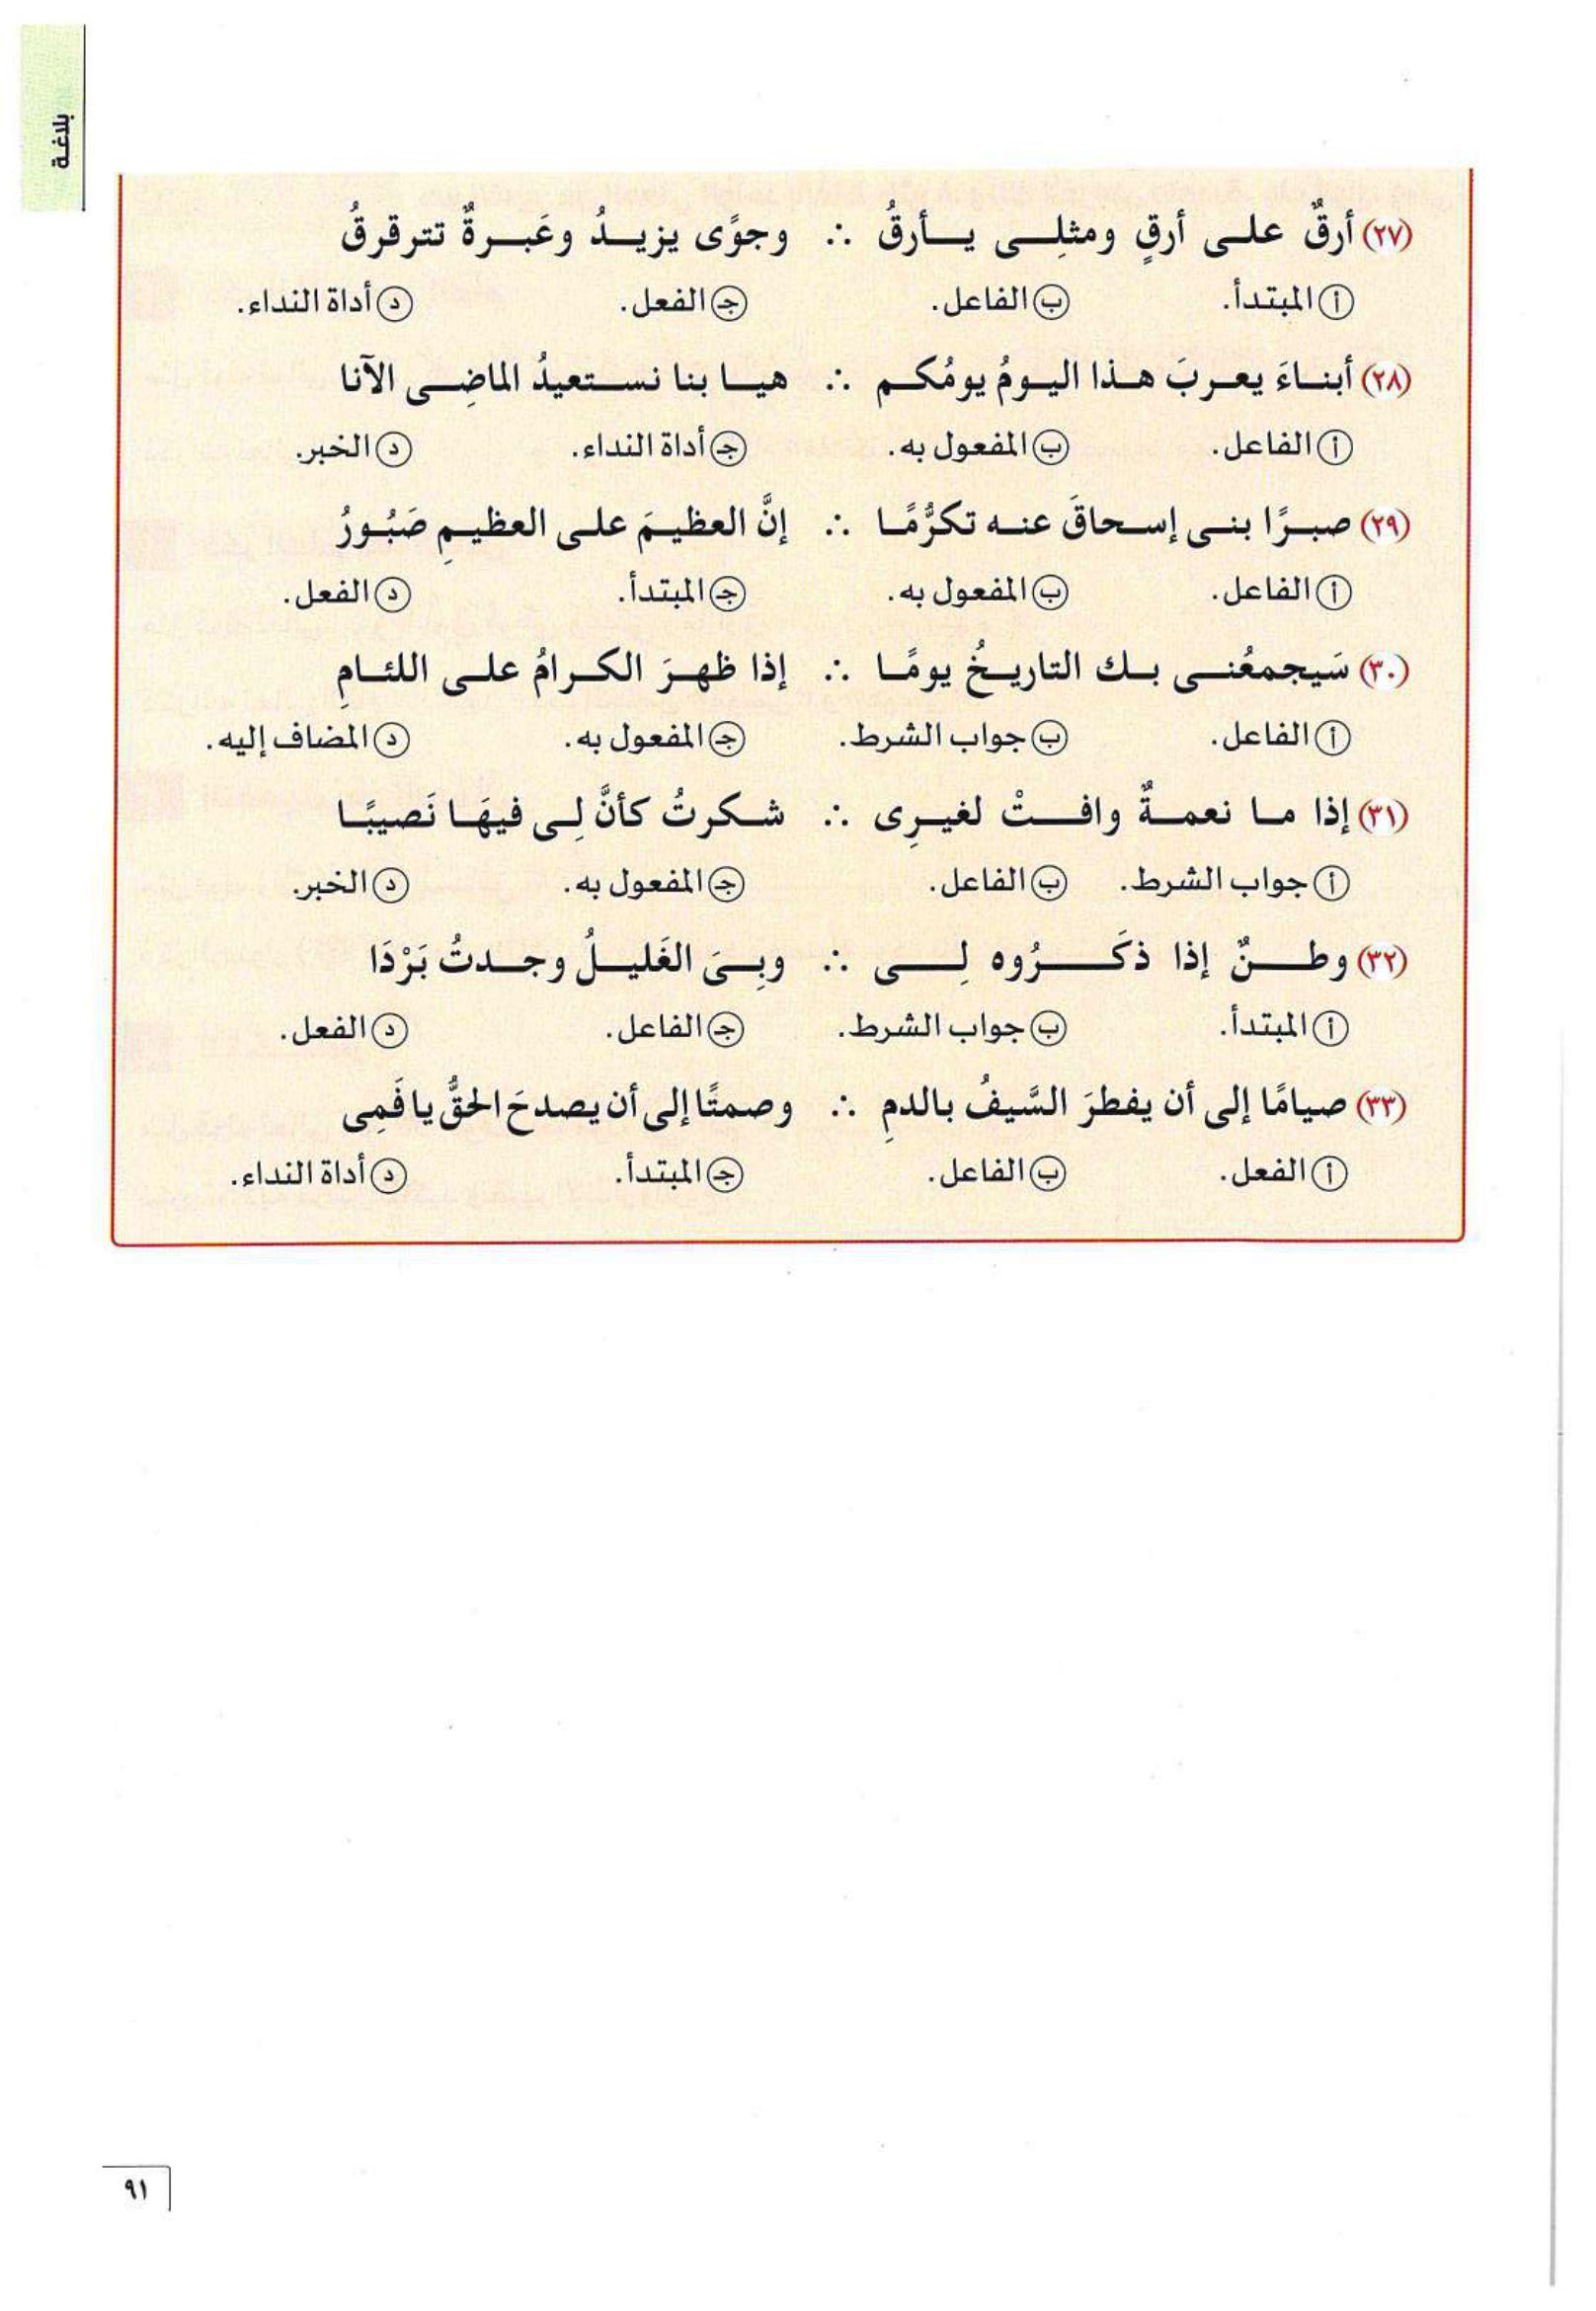 بلاغة
(٢٧) أرقٌ علـى أرقٍ ومثلِـى يـأرقُ ∴ وجوًى يزيـدُ وعَبـرةٌ تترقرقُ
أ المبتدأ. ب الفاعل. ج الفعل. د أداة النداء.
(٢٨) أبنـاءَ يعـربَ هـذا اليـومُ يومُكـم ∴ هيـا بنا نسـتعيدُ الماضِـى الآنا
أ الفاعل. ب المفعول به. ج أداة النداء. د الخبر.
(٢٩) صبـرًا بنـى إسـحاقَ عنـه تكرُّمًـا ∴ إنَّ العظيـمَ علـى العظيـمِ صَبُـورُ
أ الفاعل. ب المفعول به. ج المبتدأ. د الفعل.
(٣٠) سَيجمعُنـى بـك التاريـخُ يومًـا ∴ إذا ظهـرَ الكـرامُ علـى اللئـامِ
أ الفاعل. ب جواب الشرط. ج المفعول به. د المضاف إليه.
(٣١) إذا مـا نعمـةٌ وافـتْ لغيـرِى ∴ شـكرتُ كأنَّ لِـى فيهَـا نَصيبًـا
أ جواب الشرط. ب الفاعل. ج المفعول به. د الخبر.
(٣٢) وطـنٌ إذا ذكَـرُوه لِـى ∴ وبِـىَ الغَليـلُ وجـدتُ بَرْدَا
أ المبتدأ. ب جواب الشرط. ج الفاعل. د الفعل.
(٣٣) صيامًا إلى أن يفطرَ السَّيفُ بالدمِ ∴ وصمتًا إلى أن يصدحَ الحقُّ يا فَمِى
أ الفعل. ب الفاعل. ج المبتدأ. د أداة النداء.
٩١